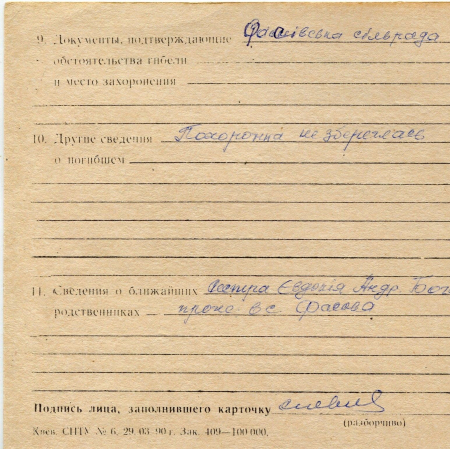 9. Документы, подтверждающие Фасівська сільрада
обстоятельства гибели
и место захоронения
10. Другие сведения Похоронна не збереглась
о погибшем
11. Сведения о ближайших Сестра Євдокія Андр. Бог
родственниках прож в с. Фасова
Подпись лица, заполнившего карточку
(разборчиво)
Киев. СПТУ № 6, 29. 03. 90 г. Зак. 409—100 000.